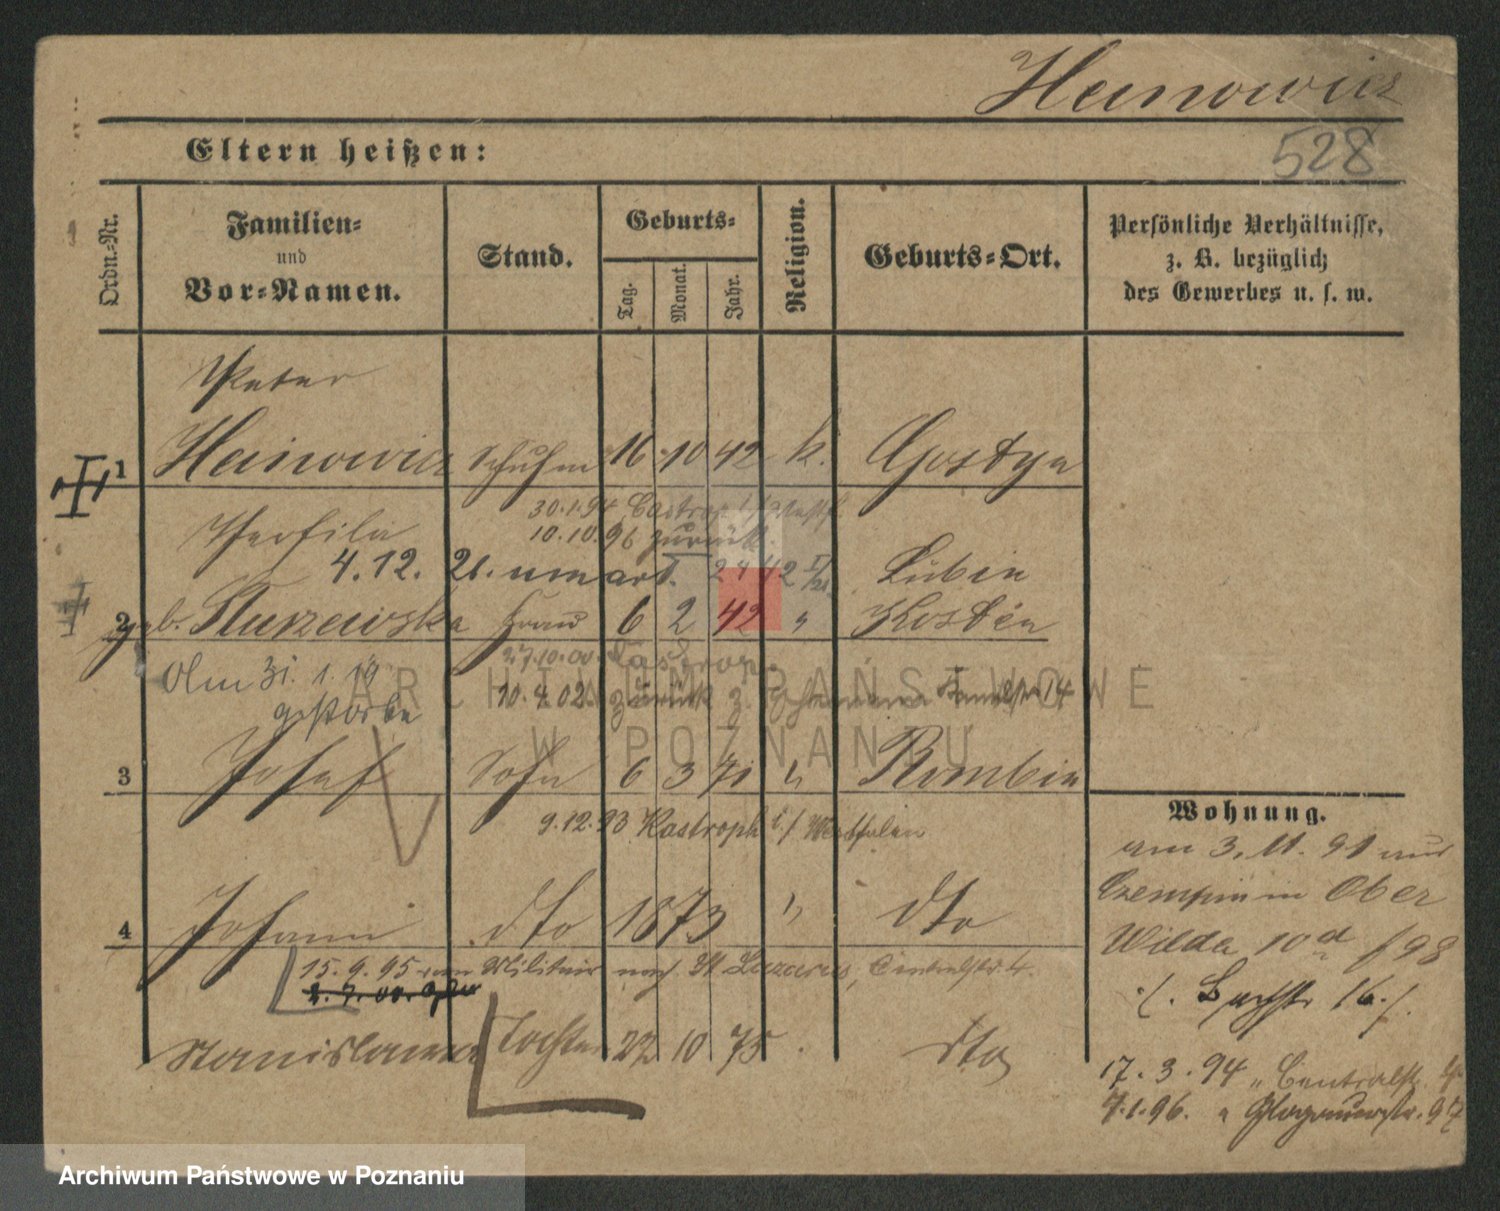 Heinowicz
528
Eltern heißen:
Ordn.-Nr.
Familien-
und
Vor-Namen.
Stand.
Geburts-
Tag.
Monat.
Jahr.
Religion.
Geburts-Ort.
Persönliche Verhältnisse,
z. B. bezüglich
des Gewerbes u. s. w.
Peter
1 Heinowicz Schuhm 16 10 42 k. Gostyn
30.1.94 Castrop i/Westf.
10.10.96 zurück.
4.12. 21. umard. Lubin
2 geb. Frau 6 2 42 " Kosten
27.10.00. Castrop.
Am 31. 1. 19 10.4.02. zurück z.
gestorben
3 Josef Sohn 6 3 71 " Rombin
9.12.93 Kastroph i/ Westfalen
4 Johann dto 1873 " dto
15.9.95 vom Militair nach St Lazarus, Centralstr. 4.
2.7.00.
Stanislawa Tochter 22 10 75 dto
Wohnung.
am 3. 11. 91 aus
Czempin in Ober
Wilda 10a /98
./. Bachstr 16./.
17.3.94 " Centralstr. 4
7.1.96. " Glogauerstr. 97
ARCHIWUM PAŃSTWOWE
W POZNANIU
Archiwum Państwowe w Poznaniu